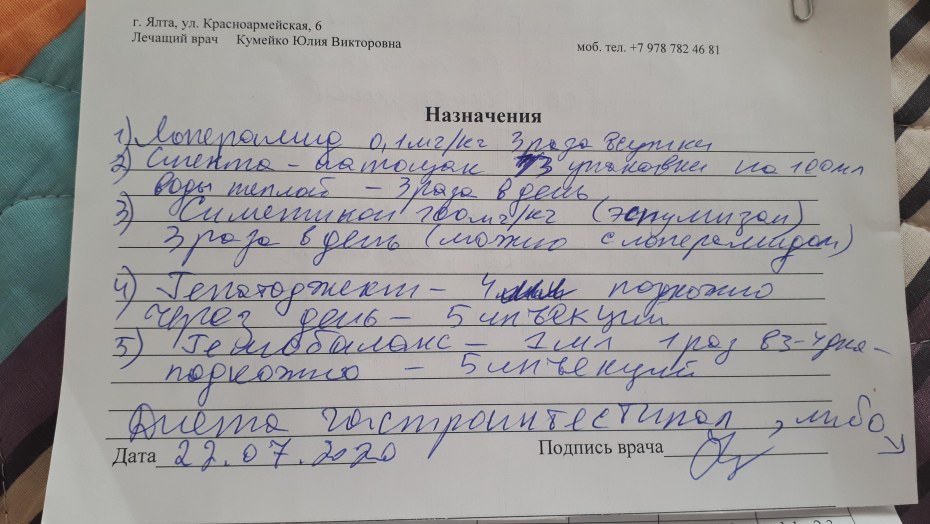 г. Ялта, ул. Красноармейская, 6
Лечащий врач Кумейко Юлия Викторовна
моб. тел. +7 978 782 46 81
Назначения
1) Лоперамид 0,1мг/кг 3 раза в сутки
2) Смекта – натощак 1/3 упаковки на 100мл
воды теплой – 3 раза в день
3) Симетикон 200мг/кг (эспумизан)
3 раза в день (можно с лоперамидом)
4) Гепатоджект – 4мл подкожно
через день – 5 инъекций
5) Гемобаланс – 1мл 1 раз в 3-4 дня –
подкожно – 5 инъекций
Диета гастроинтестинал, либо
Дата 22.07.2020
Подпись врача